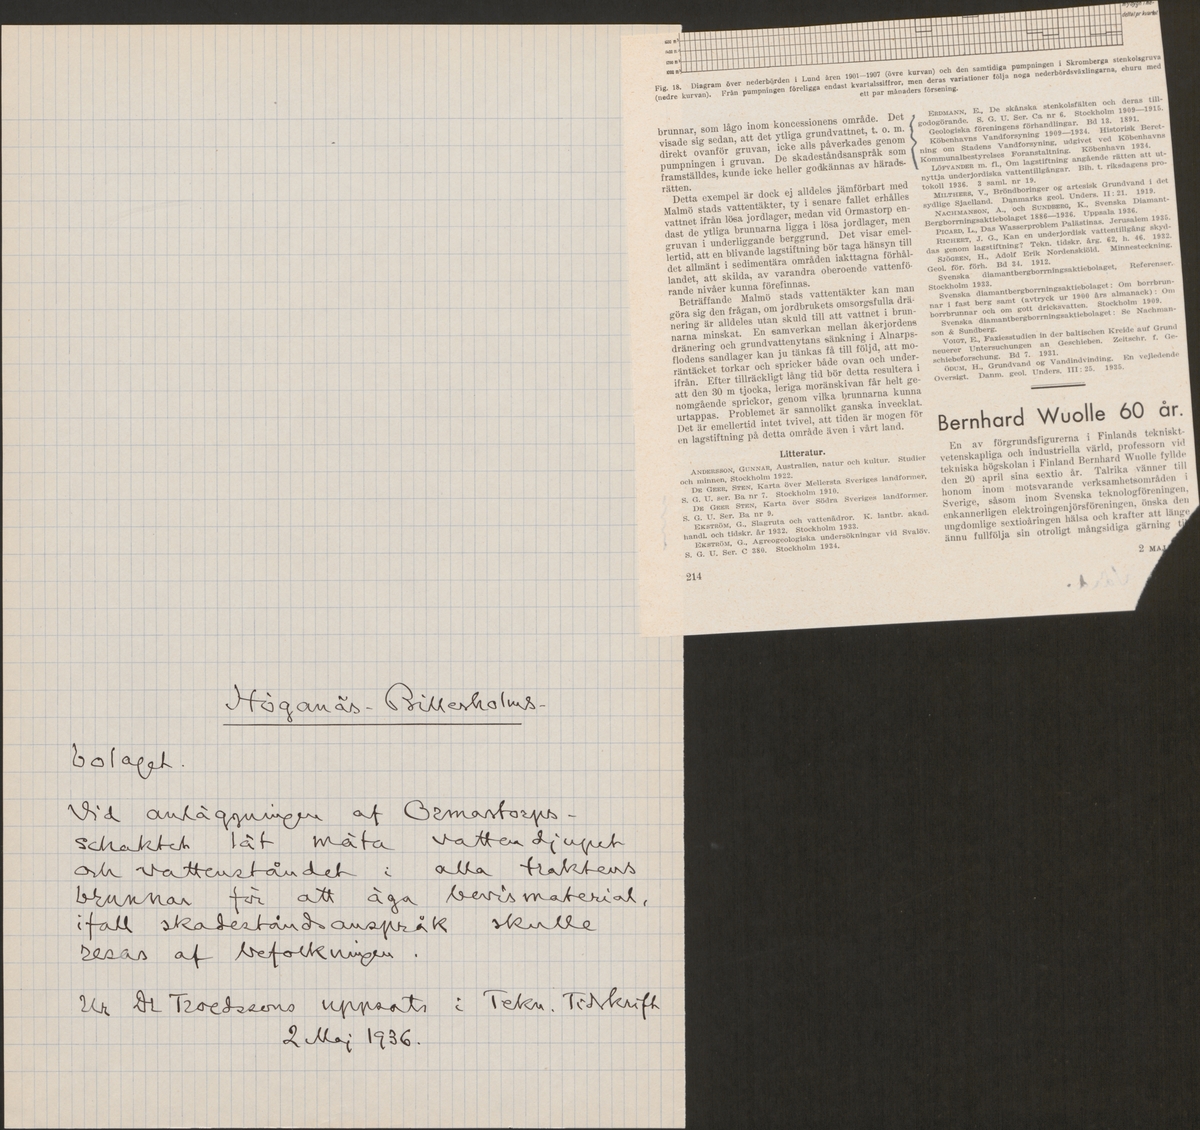 Höganäs-Billesholms-
bolaget.
Vid anläggningen af Ormastorps-
schaktet lät mäta vattendjupet
och vattenståndet i alla traktens
brunnar för att äga bevismaterial,
ifall skadeståndsanspråk skulle
resas af befolkningen.
Ur Dr Troedssons uppsats i Tekn. Tidskrift
2 Maj 1936.
Fig. 18. Diagram över nederbörden i Lund åren 1901—1907 (övre kurvan) och den samtidiga pumpningen i Skromberga stenkolsgruva
(nedre kurvan). Från pumpningen föreligga endast kvartalssiffror, men deras variationer följa noga nederbördsväxlingarna, ehuru med
ett par månaders försening.
brunnar, som lågo inom koncessionens område. Det
visade sig sedan, att det ytliga grundvattnet, t. o. m.
direkt ovanför gruvan, icke alls påverkades genom
pumpningen i gruvan. De skadeståndsanspråk som
framställdes, kunde icke heller godkännas av härads-
rätten.
Detta exempel är dock ej alldeles jämförbart med
Malmö stads vattentäkter, ty i senare fallet erhålles
vattnet ifrån lösa jordlager, medan vid Ormastorp en-
dast de ytliga brunnarna ligga i lösa jordlager, men
gruvan i underliggande berggrund. Det visar emel-
lertid, att en blivande lagstiftning bör taga hänsyn till
det allmänt i sedimentära områden iakttagna förhål-
landet, att skilda, av varandra oberoende vattenfö-
rande nivåer kunna förefinnas.
Beträffande Malmö stads vattentäkter kan man
göra sig den frågan, om jordbrukets omsorgsfulla drä-
nering är alldeles utan skuld till att vattnet i brun-
narna minskat. En samverkan mellan åkerjordens
dränering och grundvattenytans sänkning i Alnarps-
flodens sandlager kan ju tänkas få till följd, att mo-
räntäcket torkar och spricker både ovan och under-
ifrån. Efter tillräckligt lång tid bör detta resultera i
att den 30 m tjocka, leriga moränskivan får helt ge-
nomgående sprickor, genom vilka brunnarna kunna
urtappas. Problemet är sannolikt ganska invecklat.
Det är emellertid intet tvivel, att tiden är mogen för
en lagstiftning på detta område även i vårt land.
Litteratur.
ANDERSSON, GUNNAR, Australien, natur och kultur. Studier
och minnen, Stockholm 1922.
DE GEER, STEN, Karta över Mellersta Sveriges landformer,
S. G. U. ser. Ba nr 7. Stockholm 1910.
DE GEER, STEN, Karta över Södra Sveriges landformer.
S. G. U. Ser. Ba nr 9.
EKSTRÖM, G., Slagruta och vattenådror. K. lantbr. akad.
handl. och tidskr. år 1932. Stockholm 1933.
EKSTRÖM, G., Agrogeologiska undersökningar vid Svalöv.
S. G. U. Ser. C 380. Stockholm 1934.
214
ERDMANN, E., De skånska stenkolsfälten och deras till-
godogörande. S. G. U. Ser. Ca nr 6. Stockholm 1909—1915.
Geologiska föreningens förhandlingar. Bd 13. 1891.
Köbenhavns Vandforsyning 1909—1934. Historisk Beret-
ning om Stadens Vandforsyning, udgivet ved Köbenhavns
Kommunalbestyrelses Foranstaltning. Köbenhavn 1934.
LÖFVANDER m. fl., Om lagstiftning angående rätten att ut-
nyttja underjordiska vattentillgångar. Bih. t. riksdagens pro-
tokoll 1936. 2 saml. nr 19.
MILTHERS, V., Bröndboringer og artesisk Grundvand i det
sydlige Sjaelland. Danmarks geol. Unders. II: 21. 1919.
NACHMANSON, A., och SUNDBERG, K., Svenska Diamant-
Bergborrningsaktiebolaget 1886—1936. Uppsala 1936.
PICARD, L., Das Wasserproblem Palästinas. Jerusalem 1935.
RICHERT, J. G., Kan en underjordisk vattentillgång skyd-
das genom lagstiftning? Tekn. tidskr. årg. 62, h. 46. 1932.
SJÖGREN, H., Adolf Erik Nordenskiöld. Minnesteckning.
Geol. för. förh. Bd 34. 1912.
Svenska diamantbergborrningsaktiebolaget, Referenser.
Stockholm 1933.
Svenska diamantbergborrningsaktiebolaget: Om borrbrun-
nar i fast berg samt (avtryck ur 1900 års almanack): Om
borrbrunnar och om gott dricksvatten. Stockholm 1909.
Svenska diamantbergborrningsaktiebolaget: Se Nachman-
son & Sundberg.
VOIGT, E., Faziesstudien in der baltischen Kreide auf Grund
neuerer Untersuchungen an Geschieben. Zeitschr. f. Ge-
schiebeforschung. Bd 7. 1931.
ÖDUM, H., Grundvand og Vandindvinding. En vejledende
Oversigt. Danm. geol. Unders. III: 25. 1935.
Bernhard Wuolle 60 år.
En av förgrundsfigurerna i Finlands tekniskt-
vetenskapliga och industriella värld, professorn vid
tekniska högskolan i Finland Bernhard Wuolle fyllde
den 20 april sina sextio år. Talrika vänner till
honom inom motsvarande verksamhetsområden i
Sverige, såsom inom Svenska teknologföreningen,
enkannerligen elektroingenjörsföreningen, önska den
ungdomlige sextioåringen hälsa och krafter att länge
ännu fullfölja sin otroligt mångsidiga gärning
2 MAJ